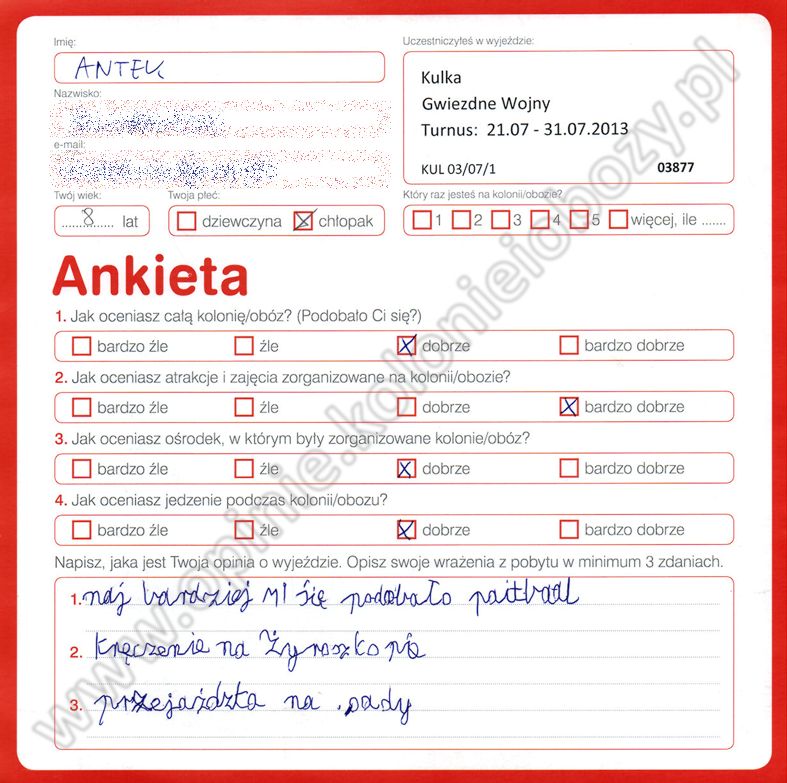 Imię:
Uczestniczyłeś w wyjeździe:
ANTEK
Kulka
Gwiezdne Wojny
Turnus: 21.07 - 31.07.2013
KUL 03/07/1
03877
Nazwisko:
e-mail:
Twój wiek:
Twoja płeć:
Który raz jesteś na kolonii/obozie?
8 lat
dziewczyna chłopak
1 2 3 4 5 więcej, ile .......
Ankieta
1. Jak oceniasz całą kolonię/obóz? (Podobało Ci się?)
bardzo źle źle dobrze bardzo dobrze
2. Jak oceniasz atrakcje i zajęcia zorganizowane na kolonii/obozie?
bardzo źle źle dobrze bardzo dobrze
3. Jak oceniasz ośrodek, w którym były zorganizowane kolonie/obóz?
bardzo źle źle dobrze bardzo dobrze
4. Jak oceniasz jedzenie podczas kolonii/obozu?
bardzo źle źle dobrze bardzo dobrze
Napisz, jaka jest Twoja opinia o wyjeździe. Opisz swoje wrażenia z pobytu w minimum 3 zdaniach.
1. naj bardziej MI się podobało
2. kręczenie na Żyroskopie
3. na
www.opinie.kolonieiobozy.pl